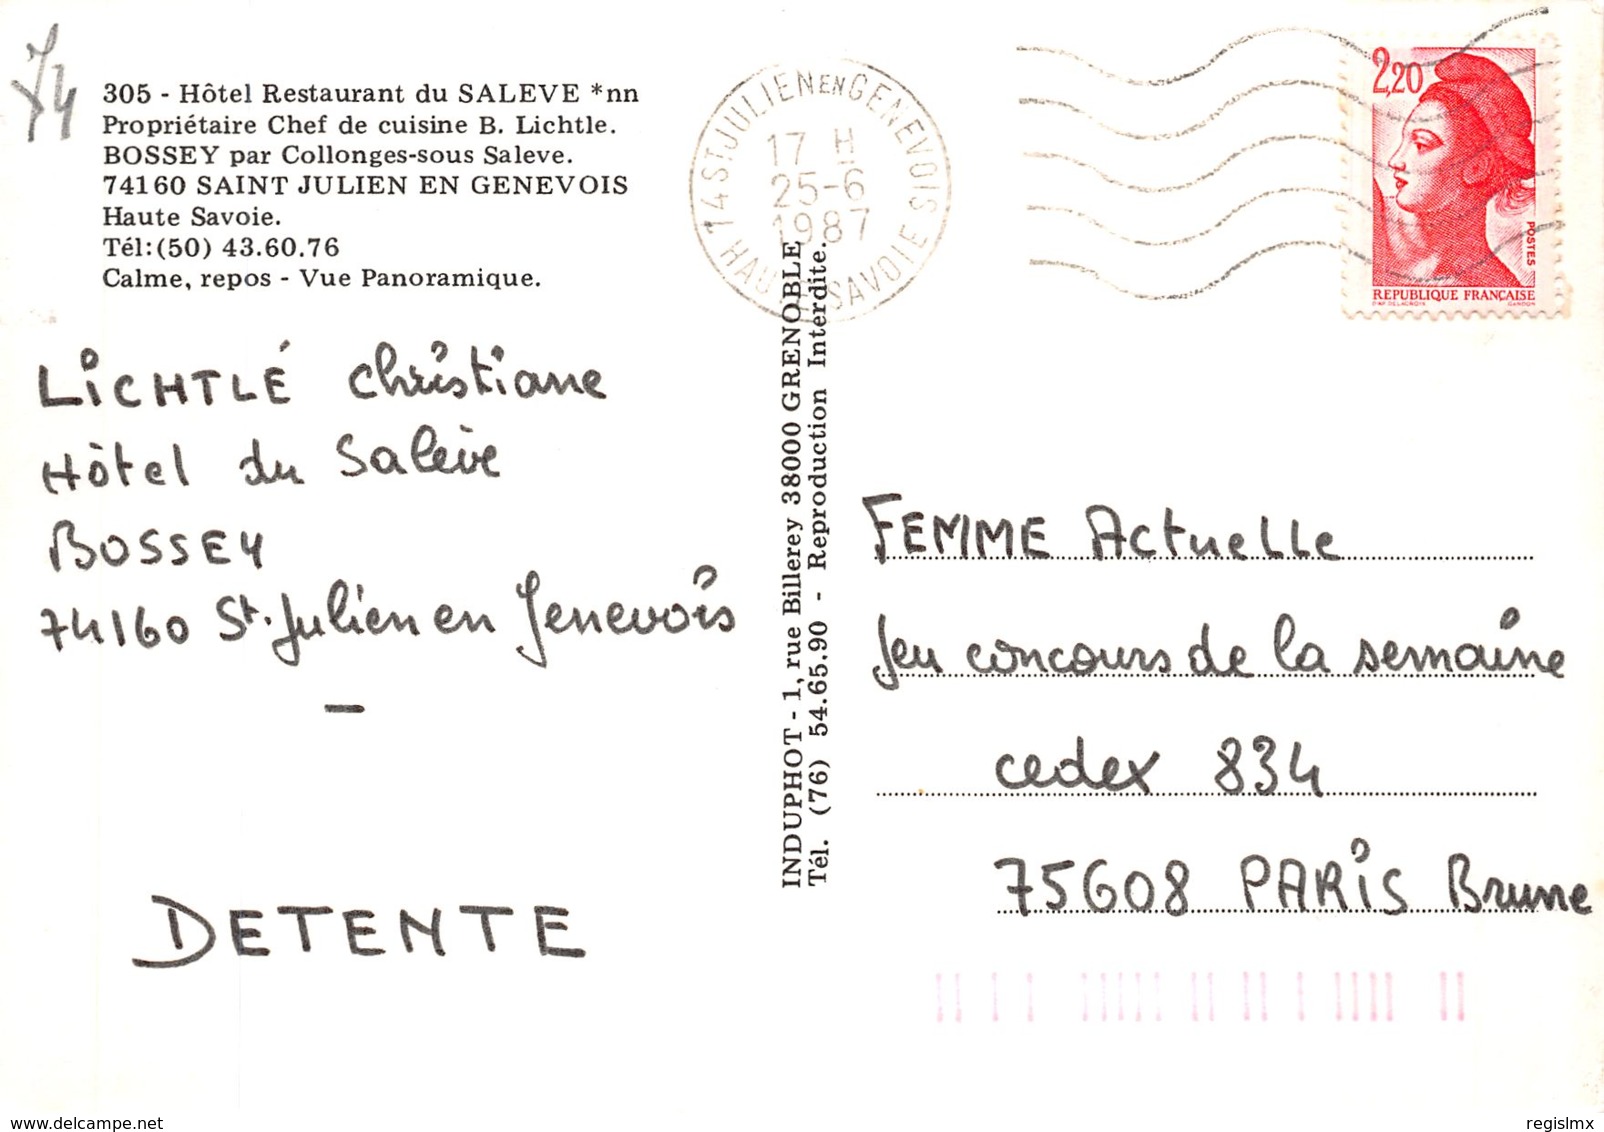 74
305 - Hôtel Restaurant du SALEVE *nn
Propriétaire Chef de cuisine B. Lichtle.
BOSSEY par Collonges-sous Saleve.
74160 SAINT JULIEN EN GENEVOIS
Haute Savoie.
Tél:(50) 43.60.76
Calme, repos - Vue Panoramique.
LiCHTLÉ Christiane
Hôtel du Salève
BOSSEY
74160 St. Julien en Genevois
DETENTE
INDUPHOT - 1, rue Billerey 38000 GRENOBLE
Tél. (76) 54.65.90 - Reproduction Interdite.
74 ST JULIEN EN GENEVOIS
17 H
25-6
1987
HAUTE SAVOIE
2,20
POSTES
REPUBLIQUE FRANÇAISE
D'AP. DELACROIX GANDON
FEMME Actuelle
Jeu concours de la semaine
cedex 834
75608 PARiS Brune
delcampe.net
regislmx